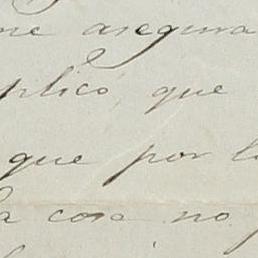 me asegura
plicó, que
que por l
la cosa no